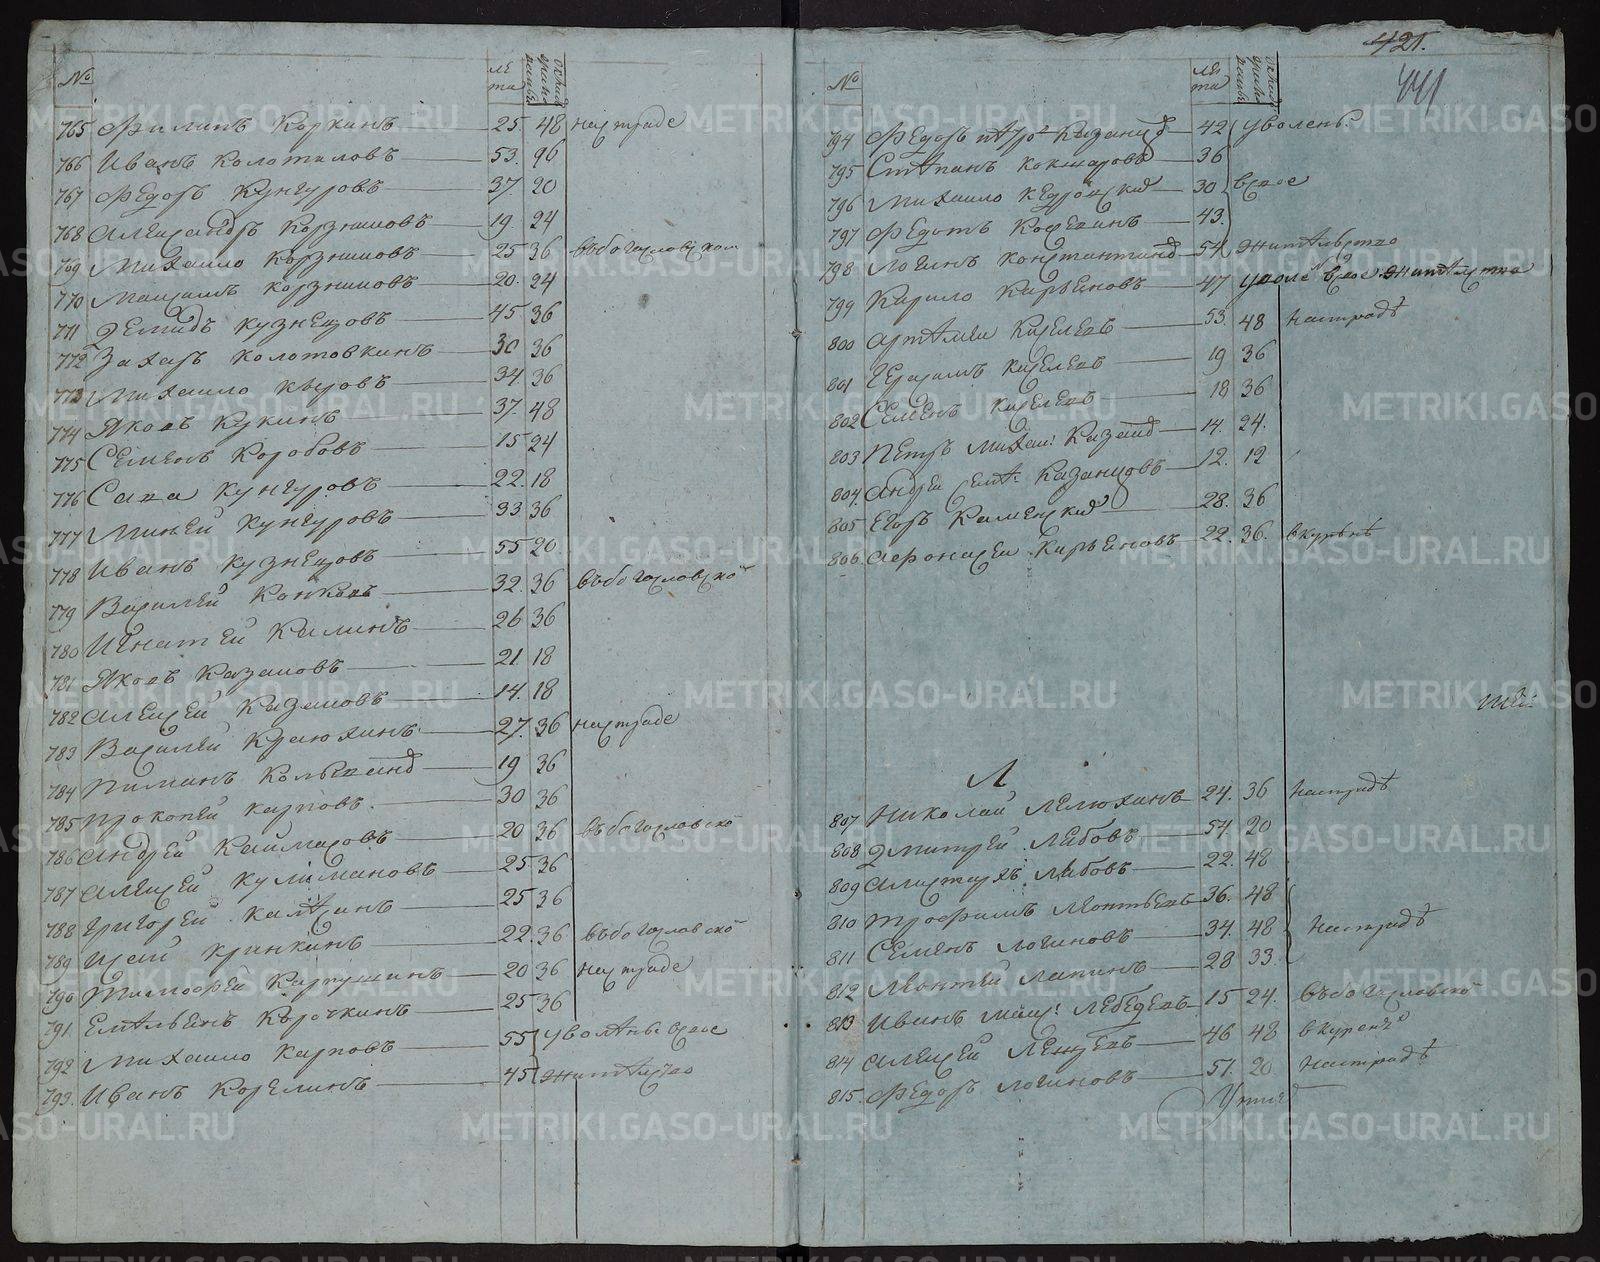 № лѣта
765 Филипъ Коркинъ 25. 48 настраде
766 Иванъ Колотиловъ 53. 96
767 Федоръ Кунгуровъ 37 20
768 Александръ Корзниковъ 19 24
769 Михаило Корзниковъ 25 36 въбогословском
770 Максимъ Корзниковъ 20. 24
771 Демидъ Кузнецовъ 45 36
772 Захаръ Колотовкинъ 30 36
773 Михаило 34 36
774 Яковъ Кукинъ 37. 48
775 Семенъ Коробовъ 15 24
776 Сава Кунгуровъ 22. 18
777 Миней Кунгуровъ 33 36
778 Иванъ Кузнецовъ 55 20
779 Василей Конковъ 32. 36 въбогословско
780 Игнатей Калинъ 26 36
781 Яковъ Казаковъ 21 18
782 Алексей Казаковъ 14. 18
783 Василей Крюхинъ 27. 36 настраде
784 Пиминъ 19 36
785 Прокопей Карповъ. 30 36
786 Андрей Каймаровъ 20 36 въбогословско
787 Алексей Кулимановъ 25. 36
788 Григорей 25 36
789 Исай Кринкинъ 22. 36 въбогословско
790 Тимофей Картушинъ 20 36 настраде
791 Емельянъ Корочкинъ 25 36
792 Михаило Карповъ 55 уволены свое
793. Иванъ Корелинъ 45 жительство
421.
441
№ лѣта
794 Федоръ Казанцо 42 уволенъ
795 Степанъ Кокшаровъ 36
796 Михаило Кедровский 30 всвое
797 Федотъ Коревинъ 43.
798 Логинъ Константино 54 жительство
799 Карило Карьеновъ 47 уволе всвое жительство
800 Артемей Киселевъ 53. 48 настрадѣ
801 Герасимъ Киселевъ 19 36
802 Семенъ Киселевъ 18 36
803 Петръ Михаи: Казанц 14. 24.
804. Андрей Казанцовъ 12. 12
805 Егоръ Каменский 28. 36
806 Афонасей Карьеновъ 22. 36. вкурьнѣ
Л
807 Николай Лелюхинъ 24. 36 настрадѣ
808 Дмитрей Лебовъ 54. 20
809 Алистархъ Лебовъ 22. 48
810 Трофимъ Леонтьевъ 36. 48
811 Семенъ Логиновъ 34. 48 настрадѣ
812 Леонтей Лапинъ 28 33.
813 Иванъ Лебедевъ 15 24. въбогословско
814 Алексей 46 48 вкурене
815. Федоръ Логиновъ 57. 20 настрадѣ
METRIKI.GASO-URAL.RU